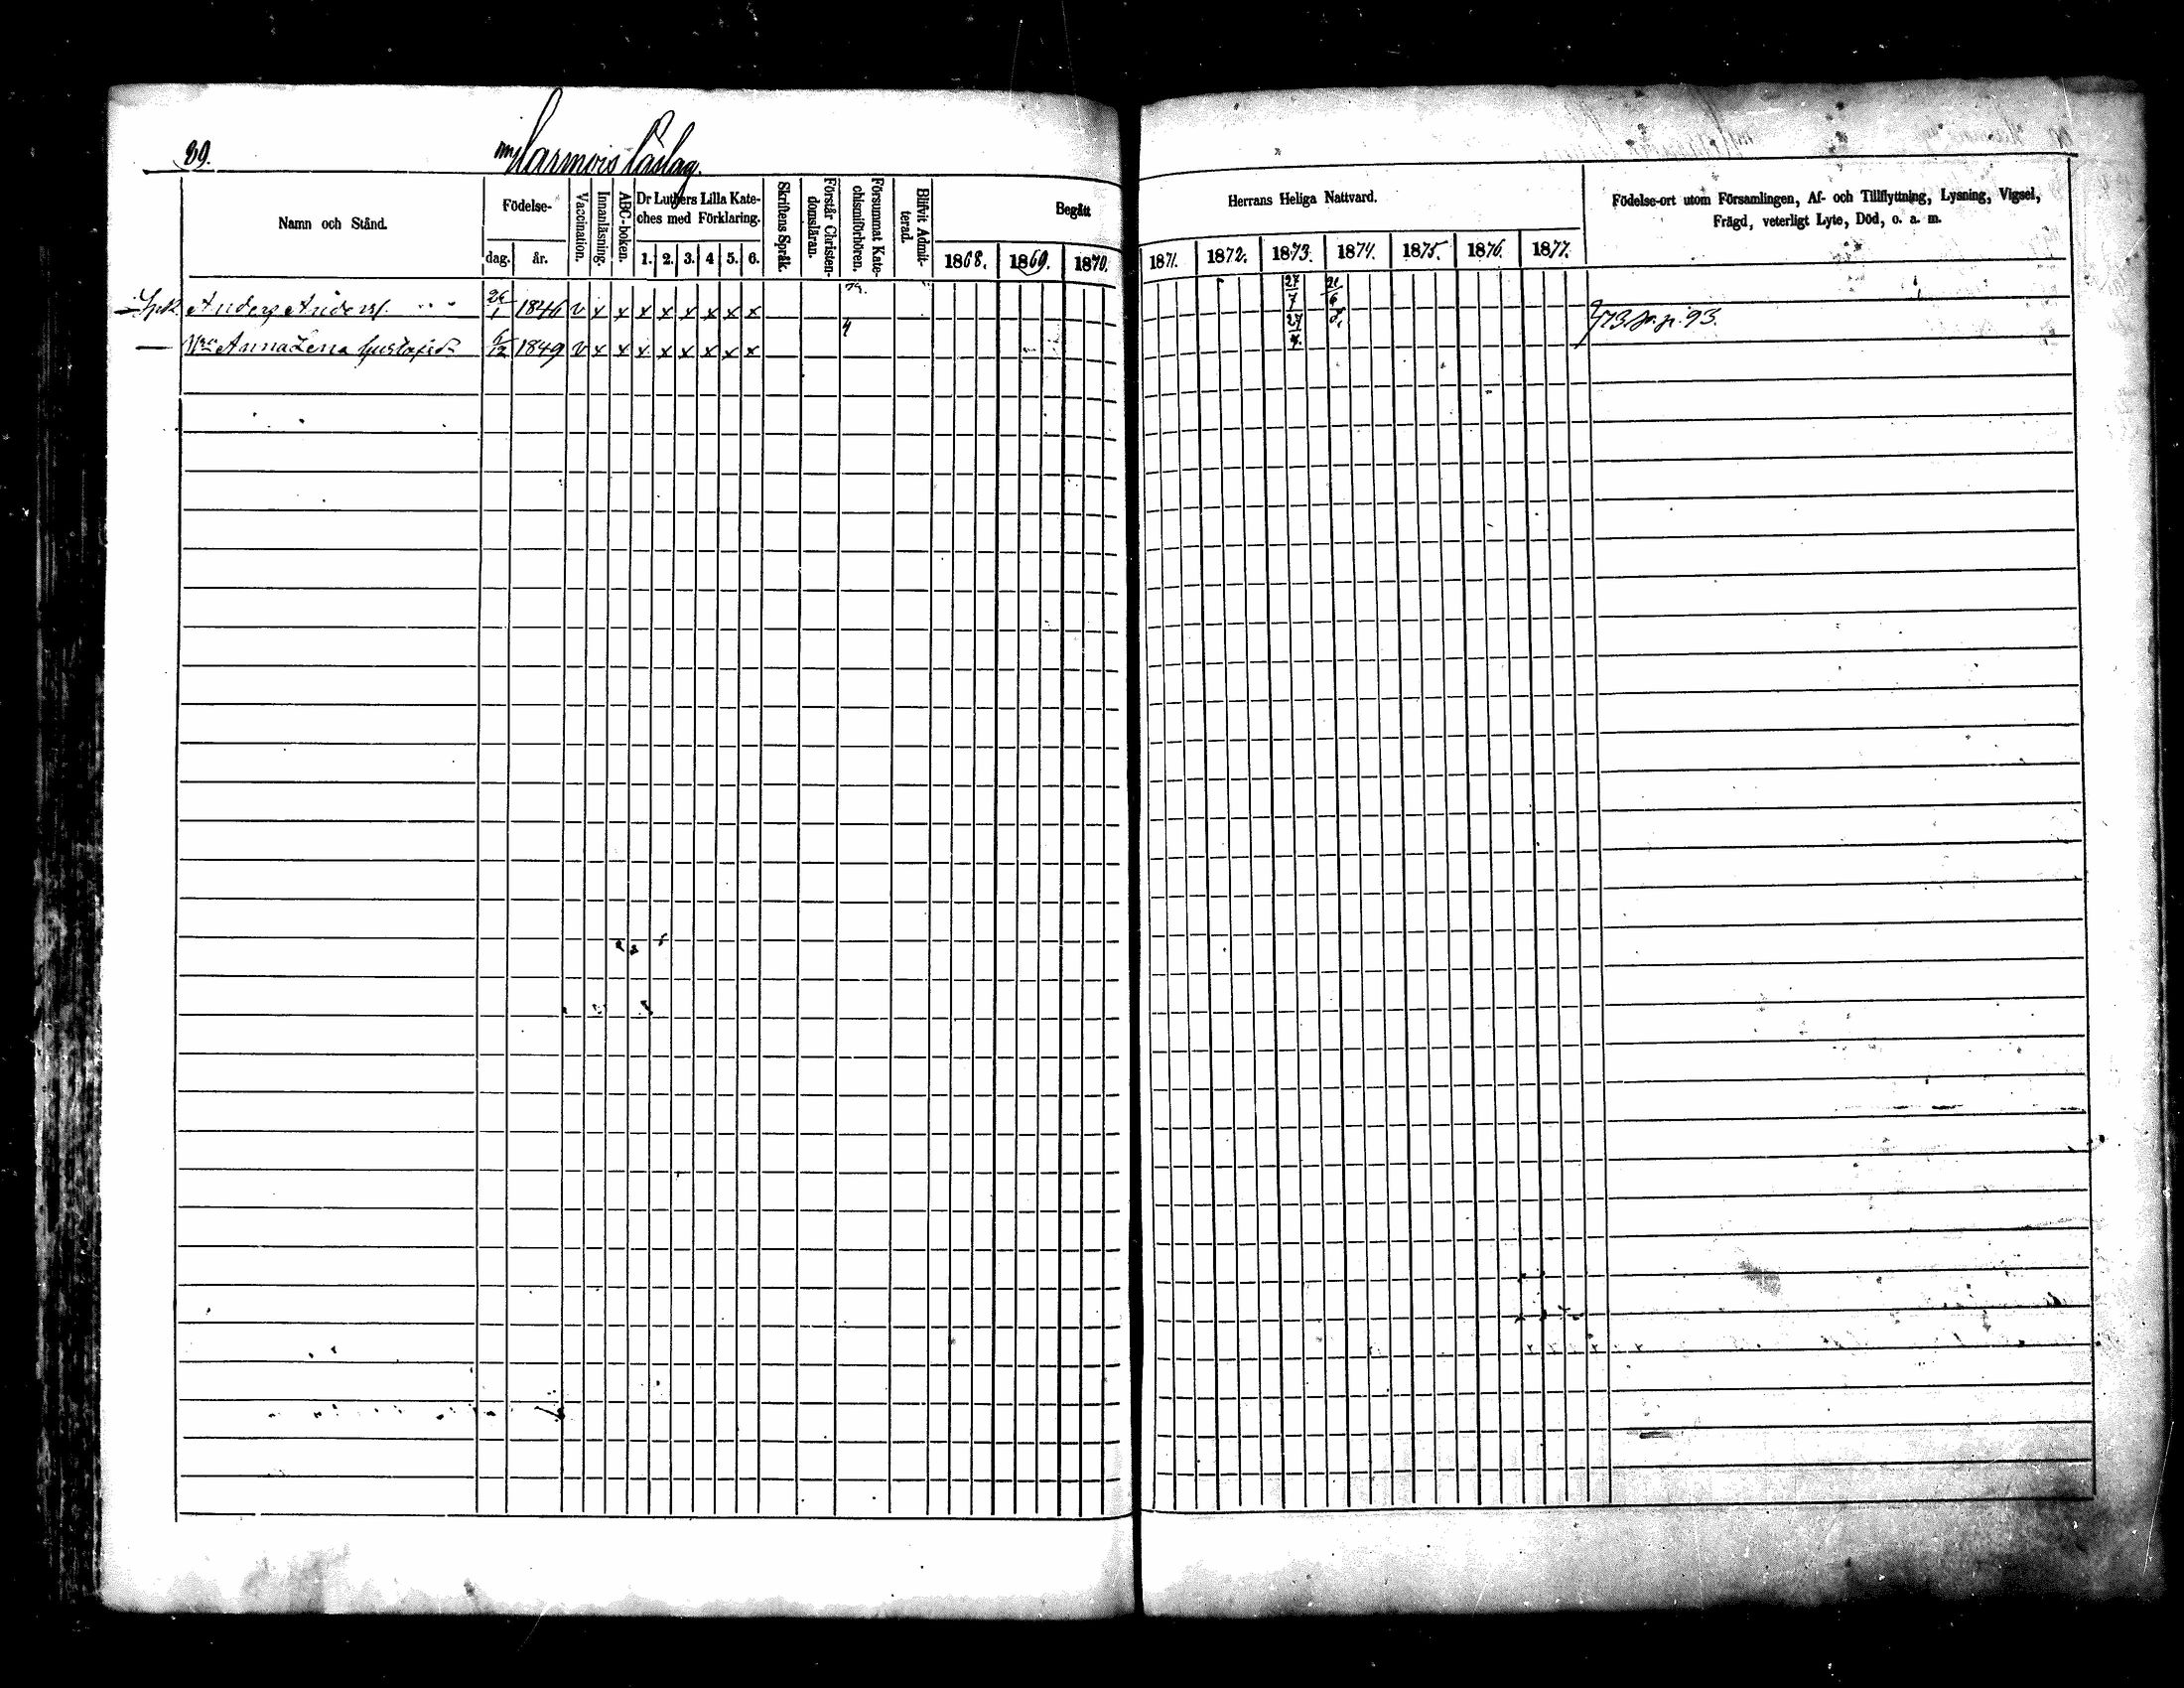 89.
Namn och Stånd.
Födelse-
dag.
år.
Vaccination.
Innanläsning.
ABC-boken.
Dr Luthers Lilla Kate-
ches med Förklaring.
1. 2. 3. 4 5. 6.
Skriftens Språk.
Förstår Christen-
domsläran.
Försummat Kate-
chismiförhören.
Blifvit Admit-
terad.
Begått
1868. 1869. 1870.
Herrans Heliga Nattvard.
1871. 1872. 1873. 1874. 1875. 1876. 1877.
Födelse-ort utom Församlingen, Af- och Tillflyttning, Lysning, Vigsel,
Frägd, veterligt Lyte, Död, o. a. m.
Anders Anderss. 1846 v x x x x x x x x 27/7
Anna Lena Gustafsd. 6/12 1849 v x x x x x x x x 4 27/7 73 p. 93.